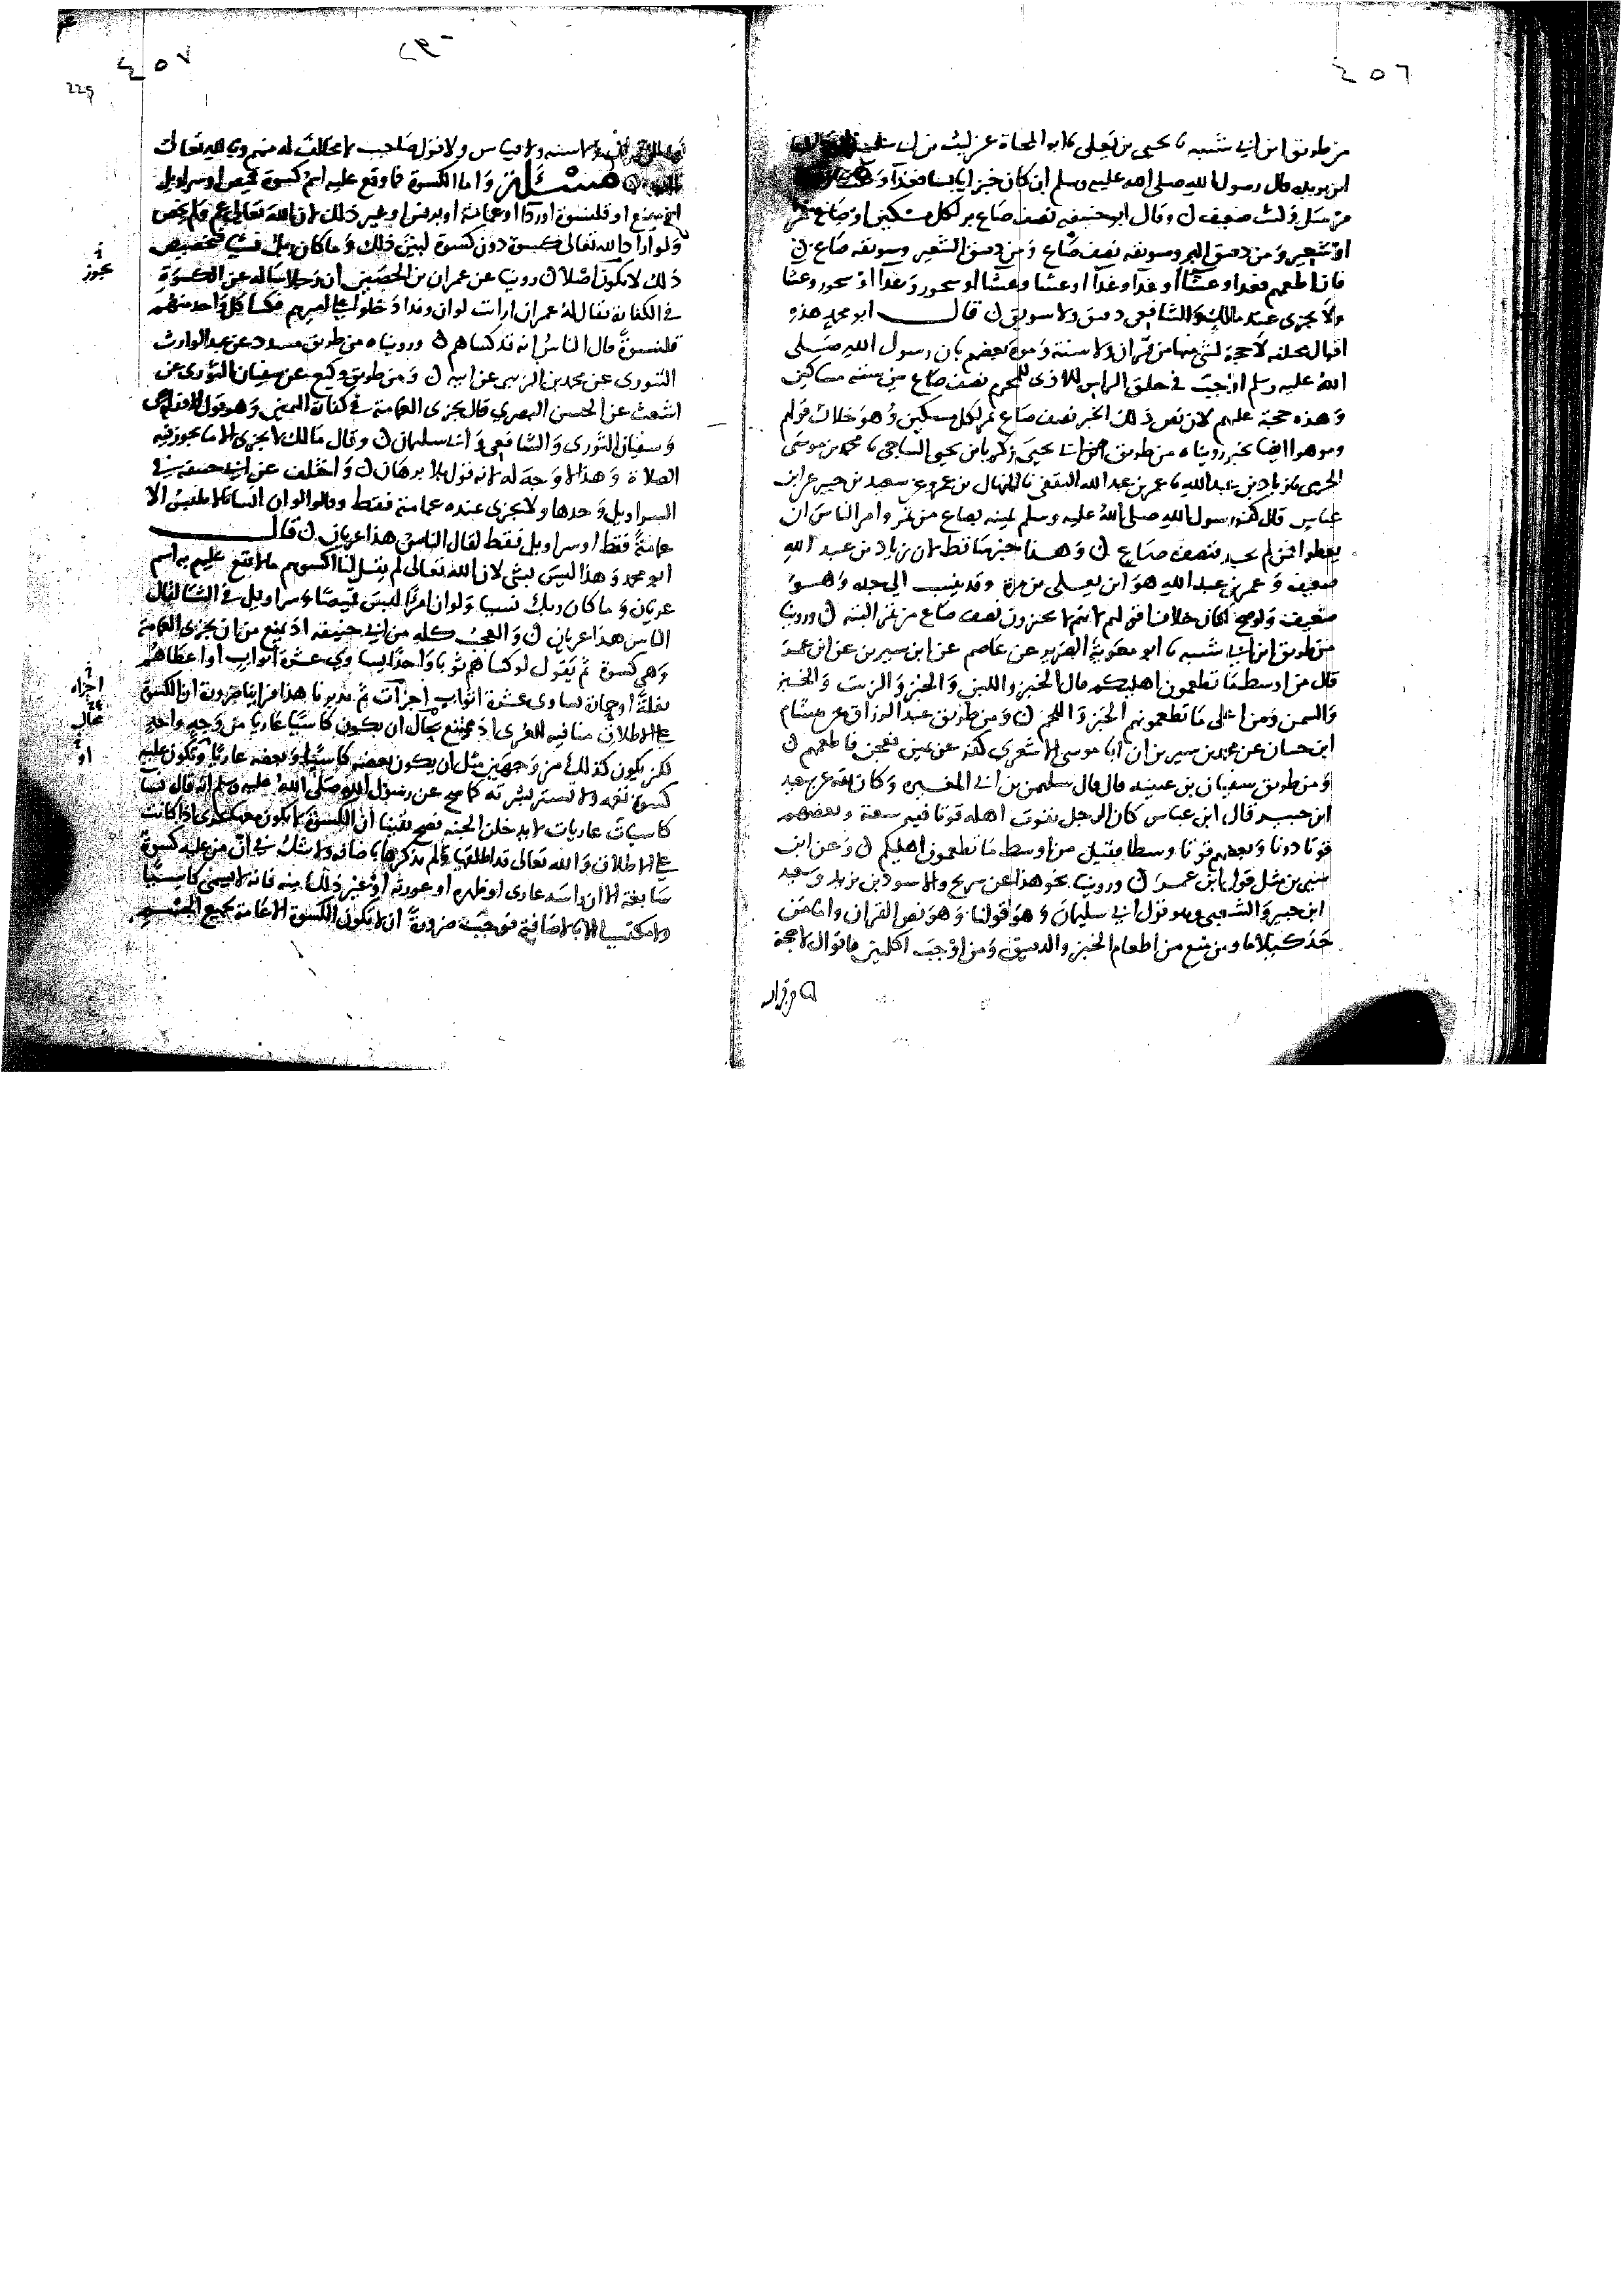 ٤٥٦
من طريق ابن ابي شيبه نا يحيى بن يعلى نا ابو المحياة عن ليث
ابن بريده قال رسول الله صلى الله عليه وسلم ان كان خبزا يابسا فغدا وعشا
مرسل وليث ضعيف ن وقال ابو حنيفه نصف صاع بر لكل مسكين او صاع تمر
او شعير ومن دقيق البر وسويقه نصف صاع ومن دقيق الشعير وسويقه صاع ن
فان اطعمهم فغدا وعشا او غدا وغدا او عشا وعشا او سحور وغدا او سحور وعشا
ولا يجزى عند مالك والشافعي دقيق ولا سويق ن قال ابو محمد هذه
اقوال مختلفه لا حجة لشي منها من قران ولا سنة وموه بعضهم بان رسول الله صلى
الله عليه وسلم اوجب في حلق الراس للاذى للمحرم نصف صاع بين ستة مساكين
وهذه حجة عليهم لان نص ذلك الخبر نصف صاع تمر لكل مسكين وهو خلاف قولهم
وموهوا ايضا بخبر رويناه من طريق ابي يحيى زكريا بن يحيى الساجي نا محمد بن موسى
الحرشي نا زياد بن عبد الله نا عمر بن عبد الله الثقفي نا المنهال بن عمرو عن سعيد بن جبير عن ابن
عباس قال كفر رسول الله صلى الله عليه وسلم بصاع من تمر وامر الناس ان
يعطوا فمن لم يجد فنصف صاع ن وهذا خبر ساقط لان زياد بن عبد الله
ضعيف وعمر بن عبد الله هو ابن يعلى بن مرة وقد ينسب الى جده وهو
ضعيف ولو صح لكان خلافا لقولهم لانهم لا يجيزون نصف صاع من تمر البته ن وروينا
من طريق ابن ابي شيبه نا ابو معوية الضرير عن عاصم عن ابن سيرين عن ابن عمر
قال من اوسط ما تطعمون اهليكم قال الخبز واللبن والخبز والزيت والخبز
والسمن ومن اعلى ما تطعمونهم الخبز واللحم ن ومن طريق عبد الرزاق عن هشام
ابن حسان عن محمد بن سيرين ان ابا موسى الاشعري كفر عن يمين فعجن فاطعمهم ن
ومن طريق سفيان بن عيينه قال قال سليمن بن ابي المغيره وكان ثقه عن سعيد
ابن جبير قال ابن عباس كان الرجل يقوت اهله قوتا فيه سعة وبعضهم
قوتا دونا وبعضهم قوتا وسطا فقيل من اوسط ما تطعمون اهليكم ن وعن ابن
سيرين مثل قول ابن عمر ن وروينا نحو هذا عن شريح والاسود بن يزيد وسعيد
ابن جبير والشعبي وهو قول ابي سليمان وهو قولنا وهو نص القران واما من
حد كيلا ما ومن منع من اطعام الخبز والدقيق ومن اوجب اكلتين فاقوال لا حجة
٤٥٧
229
ولا سنه ولا قياس ولا قول صاحب لا مخالف له منهم وبالله تعالى
مسئلة واما الكسوة فما وقع عليه اسم كسوة قميص او سراويل
او مقنع او قلنسوة او ردا او عمامة او برنس او غير ذلك لان الله تعالى عم ولم يخص
ولو اراد الله تعالى كسوة دون كسوة لبين ذلك وما كان ربك نسيا فتخصيص
ذلك لا يجوز اصلا ن روينا عن عمران بن الحصين ان رجلا ساله عن الكسوة
في الكفارة فقال له عمران ارايت لو ان وفدا دخلوا على اميرهم فكسا كل واحد منهم
قلنسوة قال الناس انه قد كساهم ن ورويناه من طريق مسدد عن عبد الوارث
التنوري عن محمد بن الزبير عن ابيه ن ومن طريق وكيع عن سفيان الثوري عن
اشعث عن الحسن البصري قال يجزى العمامة في كفارة اليمين وهو قول الاوزاعي
وسفيان الثوري والشافعي وابي سليمان ن وقال مالك لا يجزى الا ما يجوز فيه
الصلاة وهذا لا وجه له لانه قول بلا برهان ن واختلف عن ابي حنيفة في
السراويل وحدها ولا تجزى عنده عمامة فقط وقالوا لو ان انسانا لا يلبس الا
عمامة فقط او سراويل فقط لقال الناس هذا عريان ن قال
ابو محمد وهذا ليس بشي لان الله تعالى لم يقل لنا اكسوهم ما لا يقع عليهم به اسم
عريان وما كان ربك نسيا ولو ان امرا لبس قميصا وسراويل في الشتا لقال
الناس هذا عريان ن والعجب كله من ابي حنيفه اذ يمنع من ان تجزى العمامة
وهي كسوة ثم يقول لو كساهم ثوبا واحدا يساوي عشرة اثواب او اعطاهم
بغلة او حمارة تساوى عشرة اثواب اجزات ثم تدبرنا هذا فراينا ضرورة ان الكسوة
على الاطلاق منافيه للعرى اذ ممتنع محال ان يكون كاسيا عاريا من وجه واحد
لكن يكون كذلك من وجهين مثل ان يكون بعضه كاسيا وبعضه عاريا وتكون عليه
كسوة تعمه ولا تستر بشرته كما صح عن رسول الله صلى الله عليه وسلم انه قال نسا
كاسيات عاريات لا يدخلن الجنه فصح يقينا ان الكسوة لا يكون معها عرى اذا كانت
على الاطلاق والله تعالى قد اطلقها ولم يذكرها باضافه ولا شك في ان من عليه كسوة
سابغة الا ان راسه عارى او ظهره او عورته او غير ذلك منه فانه لا يسمى كاسيا
ولا مكتسيا الا بالاضافة فوجب ضرورة ان لا تكون الكسوة الا عامة لجميع الجسم
يجوز
اجزاه
محال
او